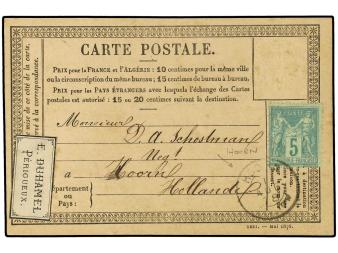 CARTE POSTALE.
PRIX pour la FRANCE et l'ALGÉRIE: 10 centimes pour la même ville
ou la circonscription du même bureau; 15 centimes de bureau à bureau.
PRIX pour les PAYS ÉTRANGERS avec lesquels l'échange des Cartes
postales est autorisé : 15 ou 20 centimes suivant la destination.
Monsieur
D. A. Schotsman
HOORN
à Hoorn
Hollande
Département
ou
Pays :
E. DUHAMEL
PÉRIGUEUX.
POSTE
5
de ce côté de la carte.
à la correspondance.
Mai 1876.